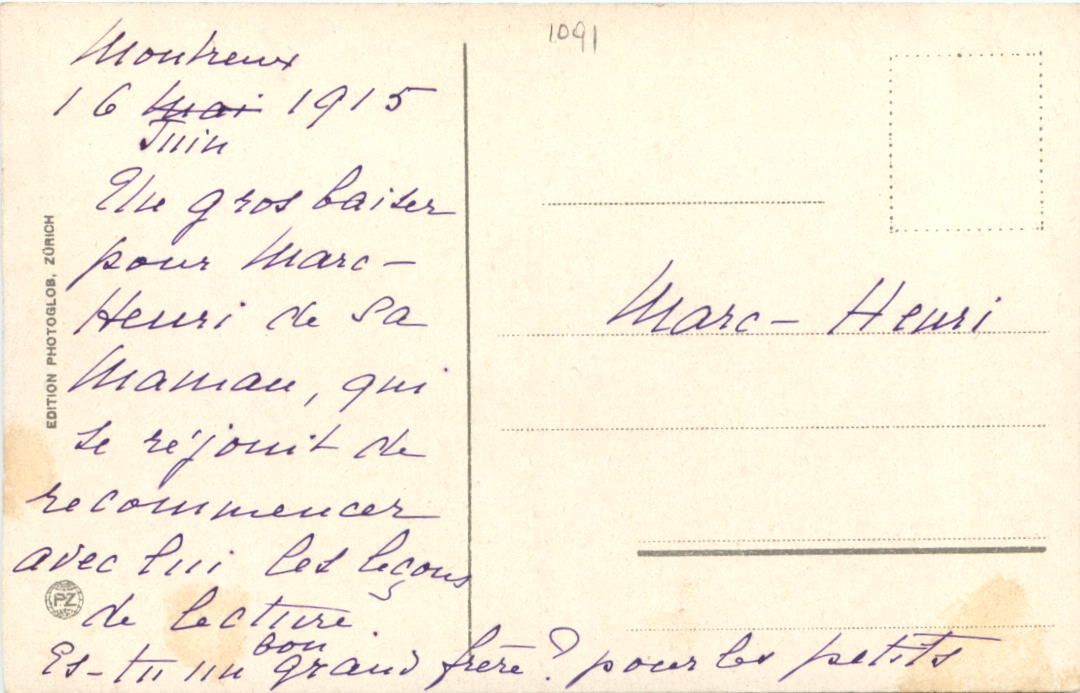 1091
Montreux
16 mai 1915
Juin
Un gros baiser
pour Marc-
Henri de sa
Maman, qui
se réjouit de
recommencer
avec lui les leçons
de lecture.
Es-tu un bon grand frère? pour les petits
Marc-Henri
EDITION PHOTOGLOB, ZÜRICH
PZ